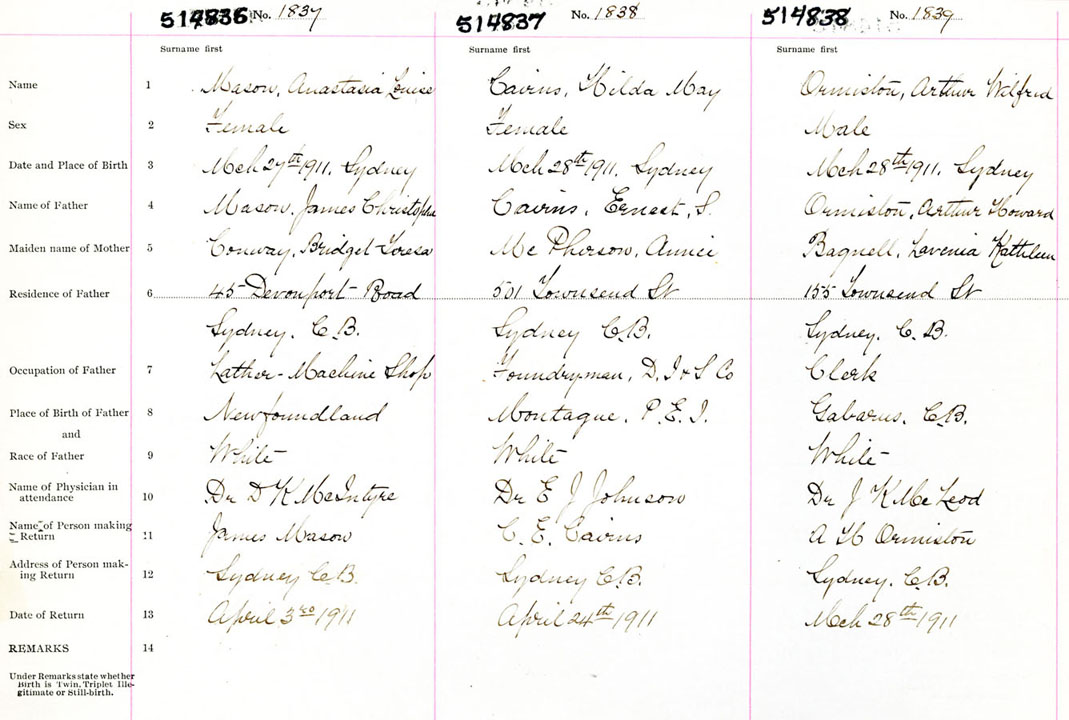 514836 No. 1837 514837 No. 1838 514838 No. 1839
Surname first Surname first Surname first
Name 1 Mason, Anastasia Louise Cairns, Hilda May Ormiston, Arthur Wilfred
Sex 2 Female Female Male
Date and Place of Birth 3 Mch 27th 1911, Sydney Mch 28th 1911, Sydney Mch 28th 1911, Sydney
Name of Father 4 Mason, James Christopher Cairns, Ernest, S. Ormiston, Arthur Howard
Maiden name of Mother 5 Conway, Bridget Teresa Mc Pherson, Annie Bagnell, Lavenia Kathleen
Residence of Father 6 45 Devonport Road 501 Townsend St 155 Townsend St
Sydney, C.B. Sydney C.B. Sydney, C.B.
Occupation of Father 7 Lather - Machine Shop Foundryman, D. I & S Co Clerk
Place of Birth of Father 8 Newfoundland Montague, P.E.I. Gabarus, C.B.
and
Race of Father 9 White White White
Name of Physician in
attendance 10 Dr D K McIntyre Dr E J Johnson Dr J K McLeod
Name of Person making
Return 11 James Mason C. E. Cairns A H Ormiston
Address of Person mak-
ing Return 12 Sydney C.B. Sydney C.B. Sydney, C.B.
Date of Return 13 April 3rd 1911 April 24th 1911 Mch 28th 1911
REMARKS 14
Under Remarks state whether
Birth is Twin, Triplet Ille-
gitimate or Still-birth.